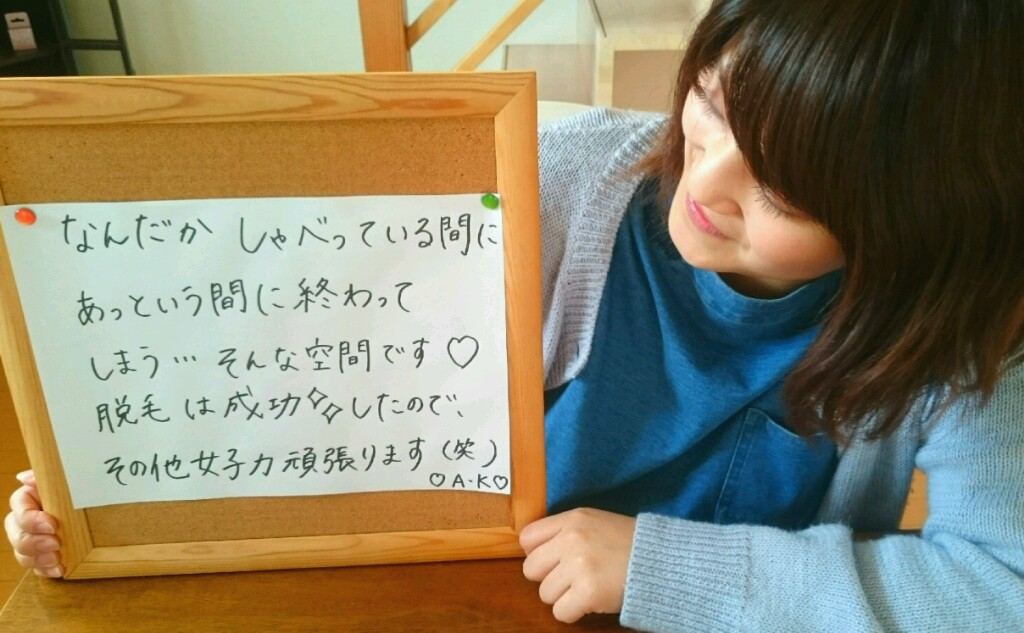 なんだか しゃべっている間に
あっという間に終わって
しまう… そんな空間です♡
脱毛は成功✨したので、
その他女子力頑張ります(笑)
♡A-K♡